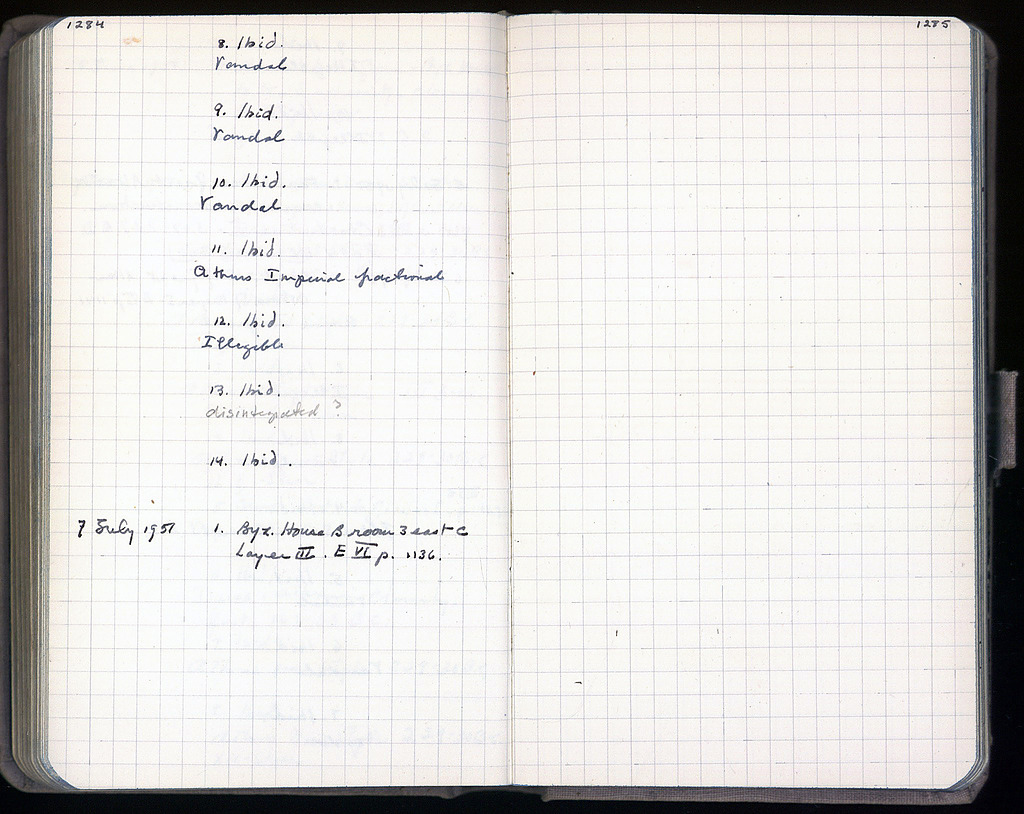 1284
8. Ibid.
Vandal
9. Ibid.
Vandal
10. Ibid.
Vandal
11. Ibid.
Athens Imperial fractional
12. Ibid.
Illegible
13. Ibid.
disintegrated ?
14. Ibid.
7 July 1951 1. Byz. House B room 3 east C
Layer III. E VI p. 1136.
1285